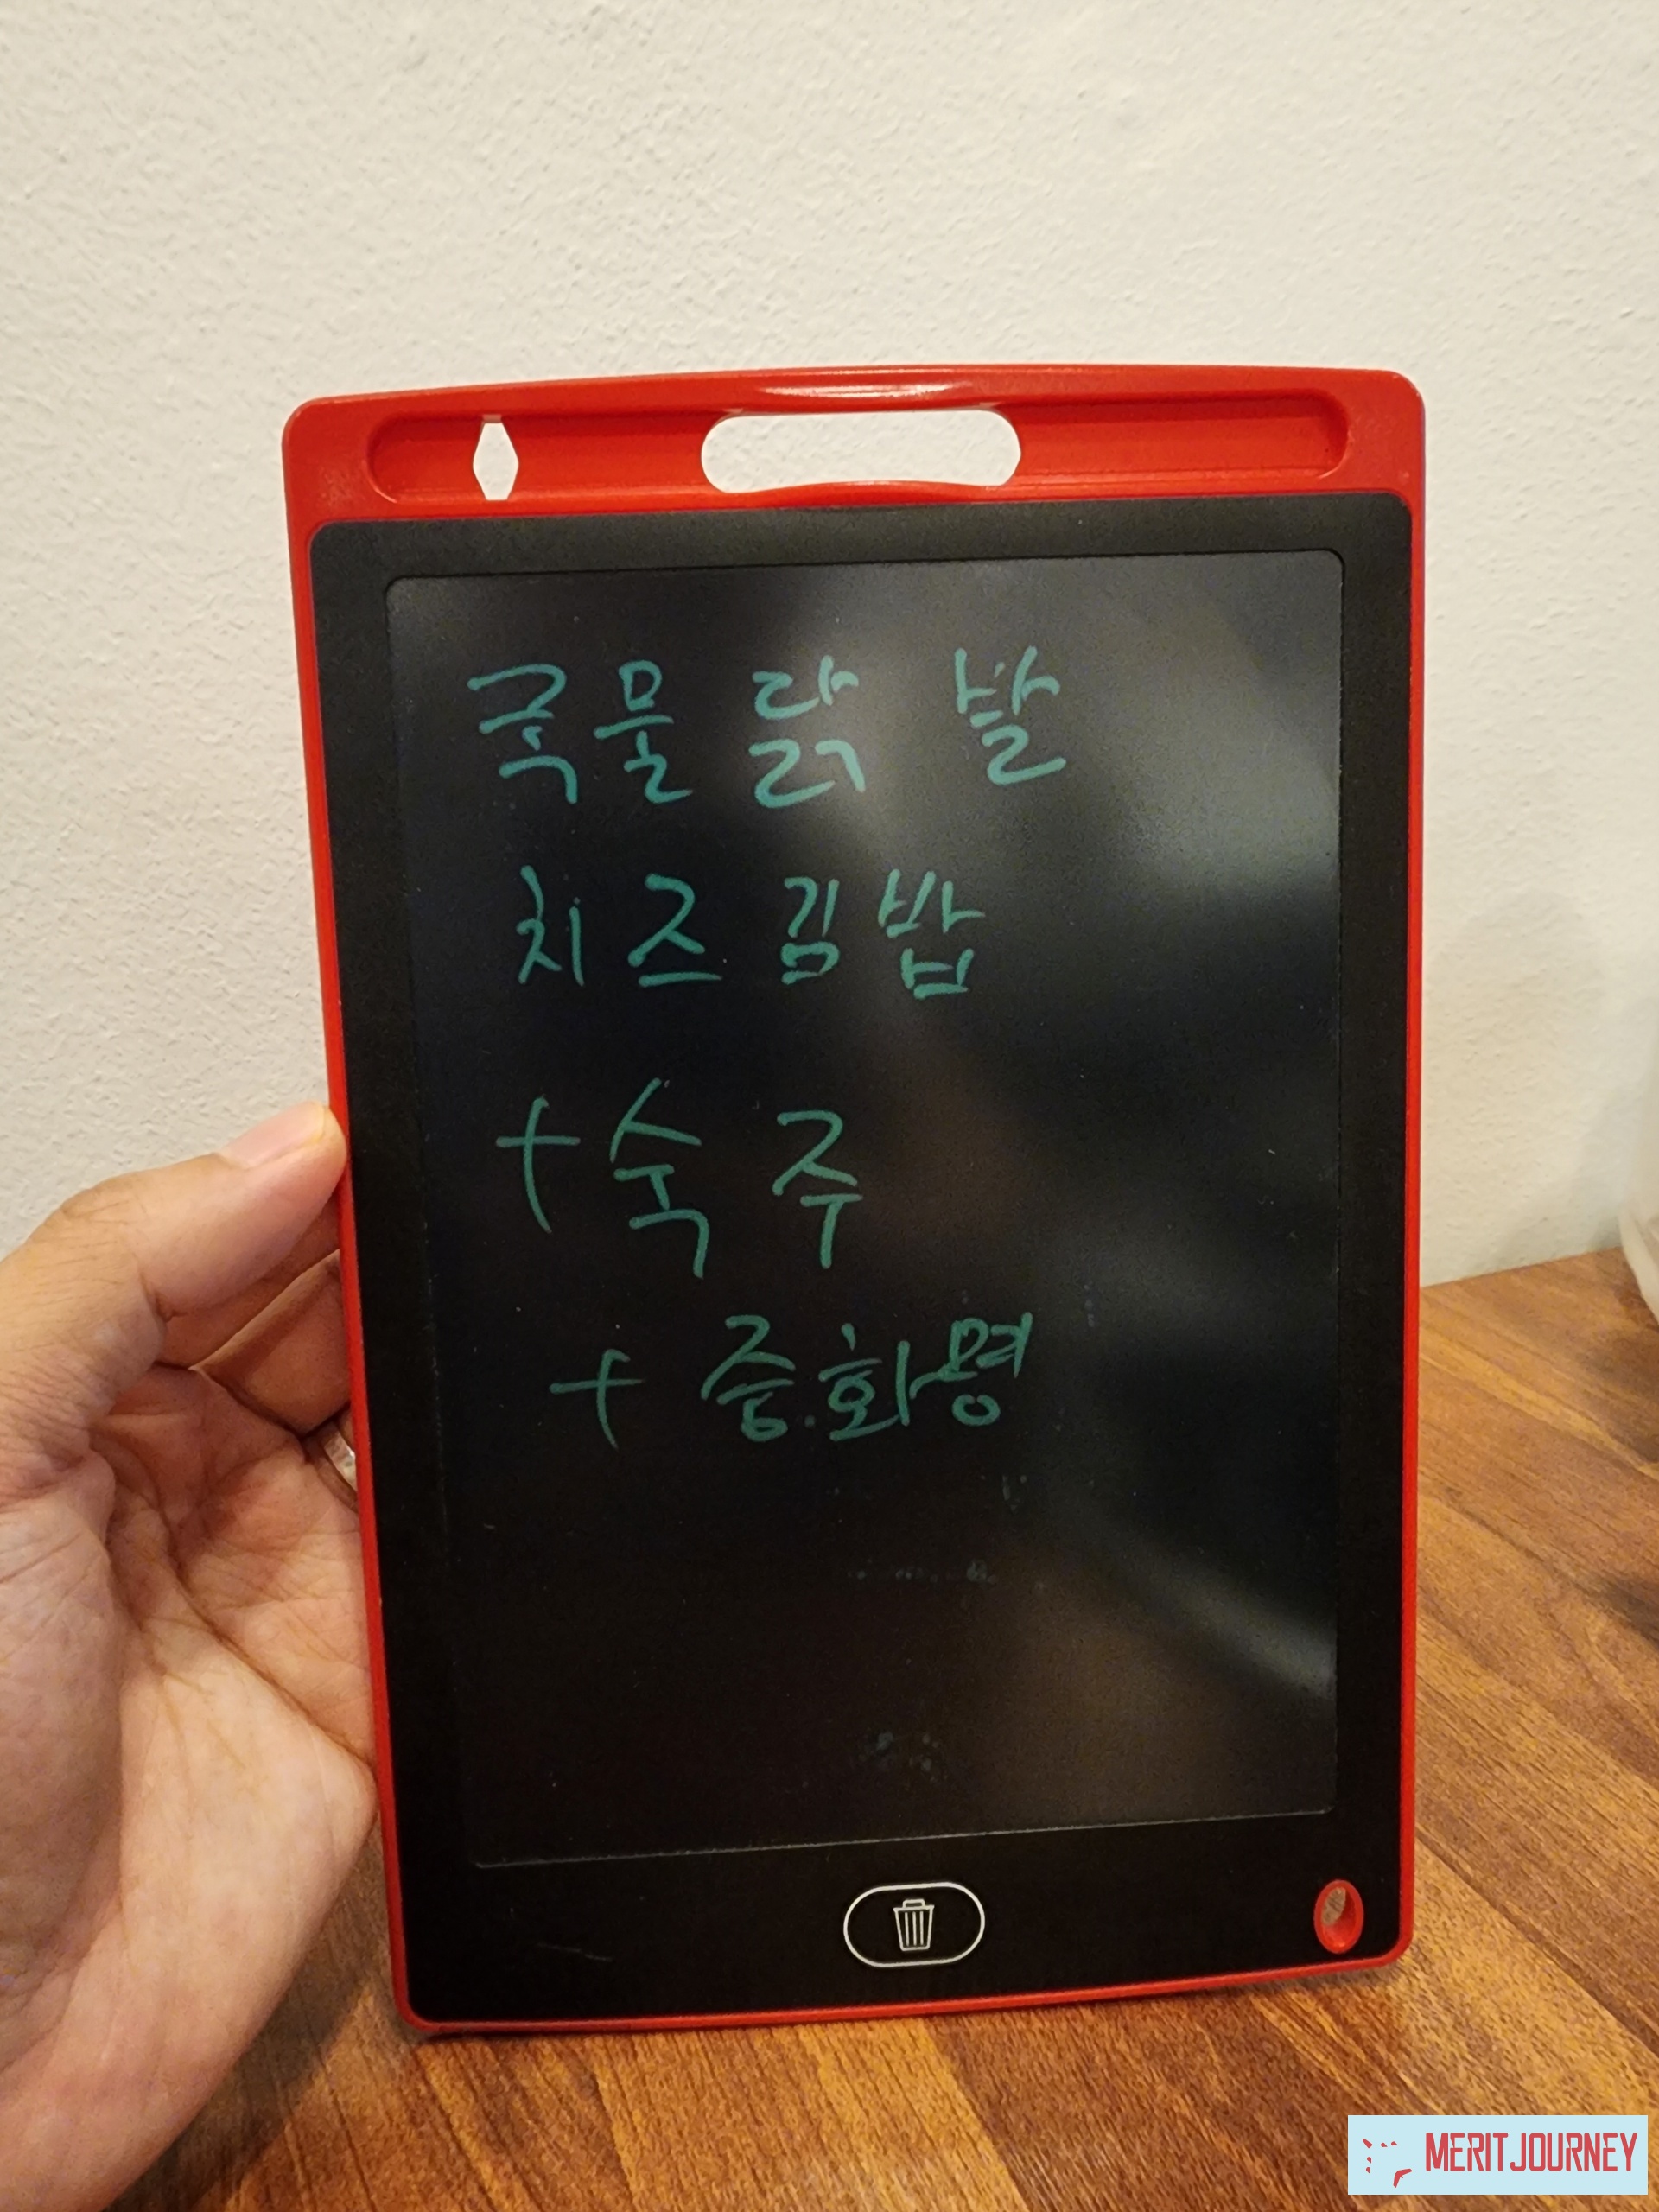 국물 닭 발
치즈김밥
+숙 주
+ 중화명
MERIT JOURNEY